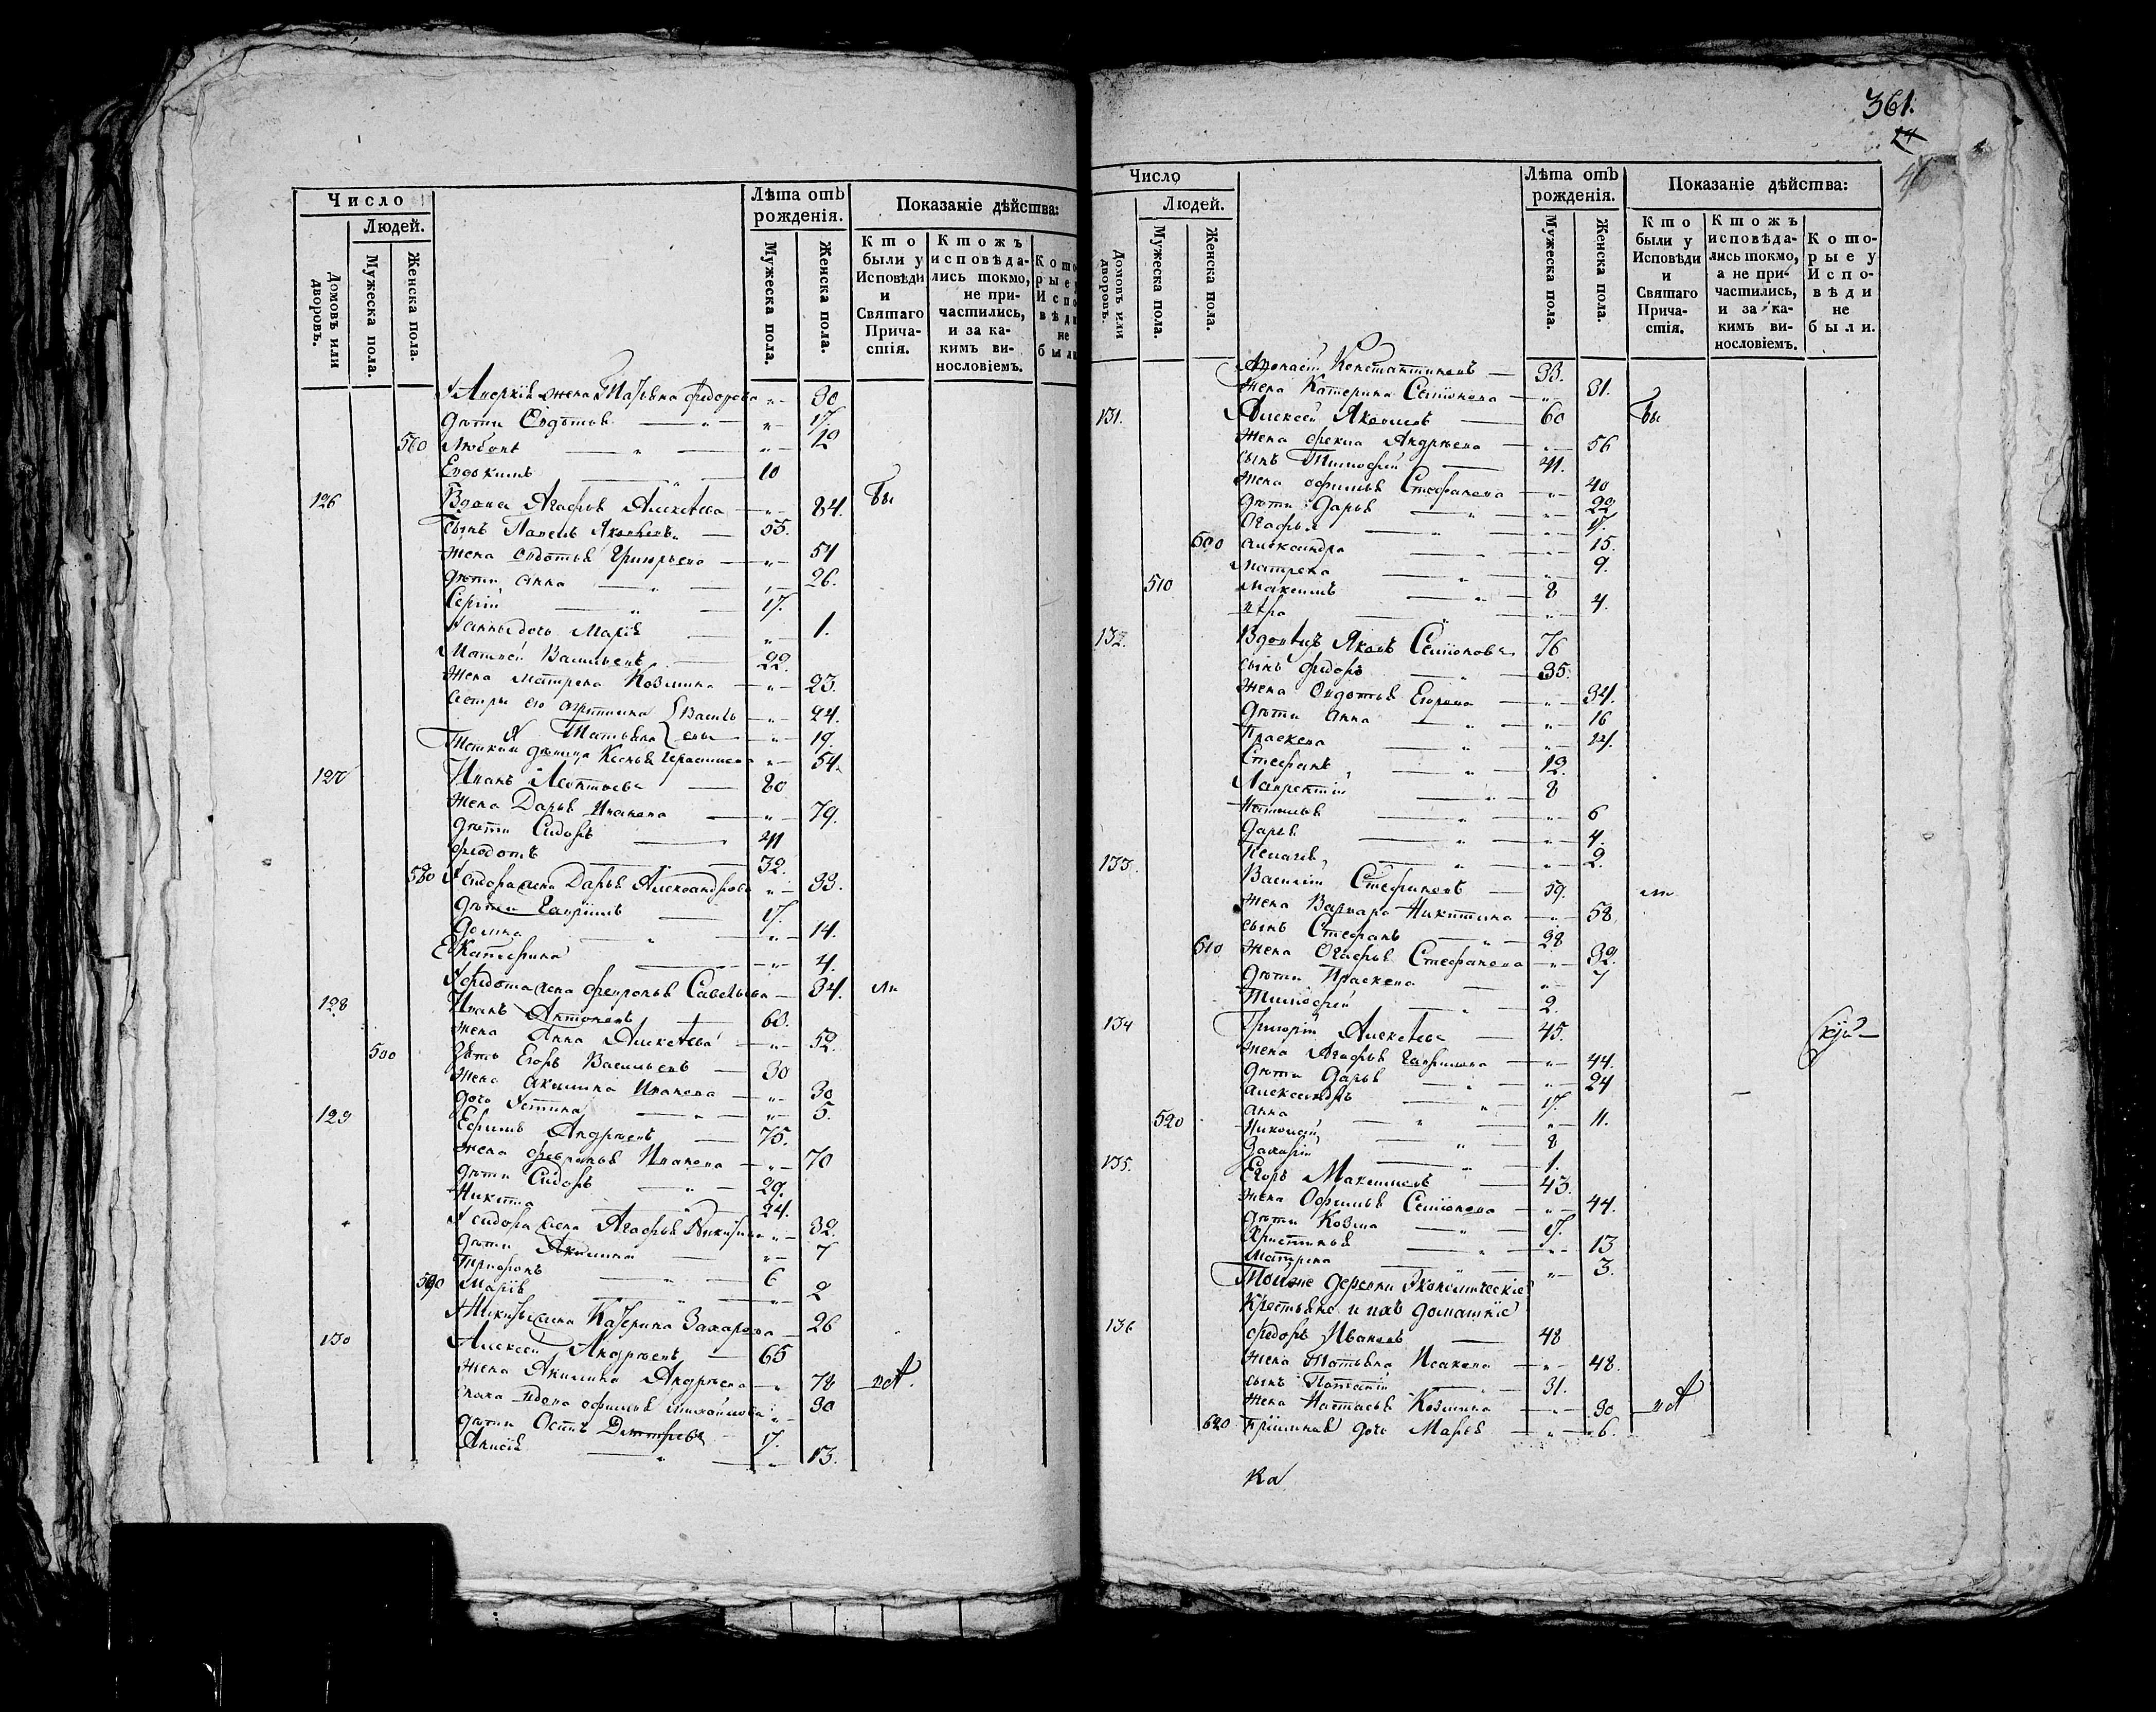 Число
Людей.
Домовъ или дворовъ.
Мужеска пола.
Женска пола.
Лѣта отъ рожденія.
Мужеска пола.
Женска пола.
Показаніе дѣйства:
Кто были у Исповѣди и Святаго Причастія.
Ктожъ исповѣдались токмо, не причастились, и за какимъ винословіемъ.
жена Марья Федорова 30
дѣти Евдотья 17
560 Любовь 12
Евдокимъ 10
126 Вдова Агафья Алексѣева 84. бы
сынъ Павелъ Яковлевъ 55.
жена Евдотья Григорьева 54
дѣти Анна 26.
Сергій 17.
Анны дочь Марія 1.
Матвей Васильевъ 22.
жена Матрена Козмина 23.
сестры его Агрипина Василь 24.
Татьяна евы 19.
девица Ксенья Герасимова 54.
127 Иванъ Леонтьевъ 80
жена Дарья Иванова 79.
дѣти Сидоръ 41
Федотъ 32.
580 Сидора жена Дарья Александрова 33.
дѣти Гавріилъ 17.
Домна 14.
Екатерина 4.
Федота жена Февронья Савельева 34. ли
128 Иванъ Антоновъ 63.
жена Анна Алексѣева 52.
500 зять Егоръ Васильевъ 30
жена Акилина Иванова 30
дочь Устинья 5.
129 Ефимъ Андреевъ 75.
жена Февронья Иванова 70
дѣти Сидоръ 29.
Никита 24.
Сидора жена Агафья 32.
дѣти Акилина 7
Трифонъ 6
590 Марія 2
Никиты жена Катерина Захарова 26
130 Алексей Андреевъ 65
жена Акилина Андреева 78
сноха вдова Офимья Михайлова 30
дѣти Осипъ Дмитревъ 17.
Анисія 13.
361.
24
Число
Людей.
Домовъ или дворовъ.
Мужеска пола.
Женска пола.
Лѣта отъ рожденія.
Мужеска пола.
Женска пола.
Показаніе дѣйства:
Кто были у Исповѣди и Святаго Причастія.
Ктожъ исповѣдались токмо, а не причастились, и за какимъ винословіемъ.
Которые у Исповѣди не были.
Афонасій Константиновъ 33.
жена Катерина Семіонова 31.
131. Алексей Яковлевъ 60 бы
жена Фекла Андреева 56
сынъ Тимофей 41.
жена Офимья Стефанова 40
дѣти Дарья 22
Огафья 17.
600 Александра 15.
Матрена 9.
510 Максимъ 8
4.
132. Вдовецъ Яковъ Семіоновъ 76
сынъ Федоръ 35.
жена Овдотья Егорова 34.
дѣти Анна 16
Праскева 14.
Стефанъ 12.
Лаврентій 8
Наталья 6
Дарья 4.
Пелагея 2.
133. Василій Стефановъ 59. ли
жена Варвара Никитина 58
сынъ Стефанъ 38
610 жена Огафья Стефанова 32.
дѣти Праскева 7
Тимофей 2.
134 Григорій Алексѣевъ 45.
жена Агафья Гаврилова 44.
дѣти Дарья 24
Александръ 17.
Анна 11.
520 Николай 8
Захарій 1.
135. Егоръ Максимовъ 43.
жена Офимья Семіонова 44.
дѣти Козма 17.
Христинья 13
Матрена 3.
Тойже деревни Экономическіе
Крестьяне и ихъ домашніе
136 Федоръ Ивановъ 48
жена Татьяна Исакова 48.
сынъ 31.
жена Настасья Козмина 30
620 дочь Марья 6.